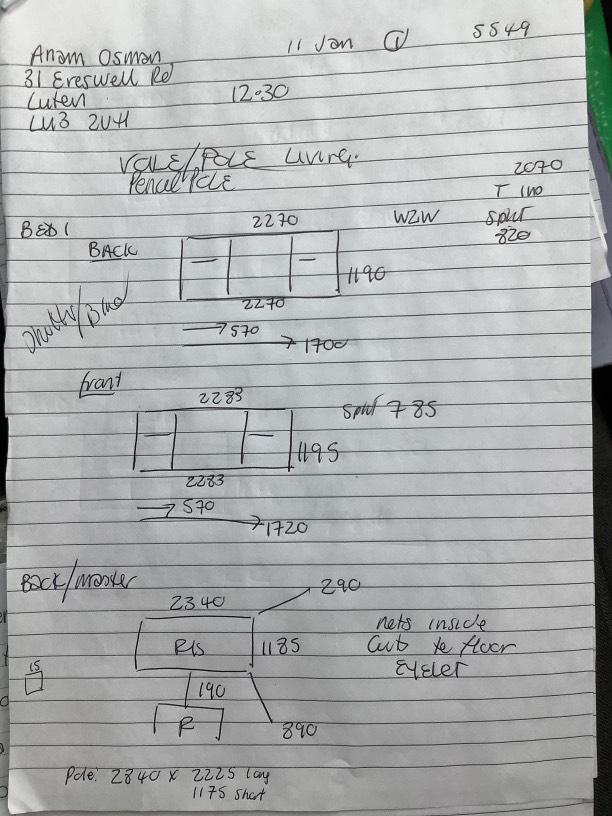 Anam Osman 11 Jan ① 5549
31 Ereswell Rd
Luten 12.30
LU3 2UH
VALE/POLE Living.
Penal Pole
2070
T 110
BED 1 2270 W2W Split
BACK 820
1190
2270
Shutter/Blind
570
1700
front
2283
Split 785
1195
2283
570
1720
Back/master 290
2340
nets inside
R/S 1185 Curts to floor
Eyelet
15
190
R 890
Pole: 2840 x 2225 long
1175 short